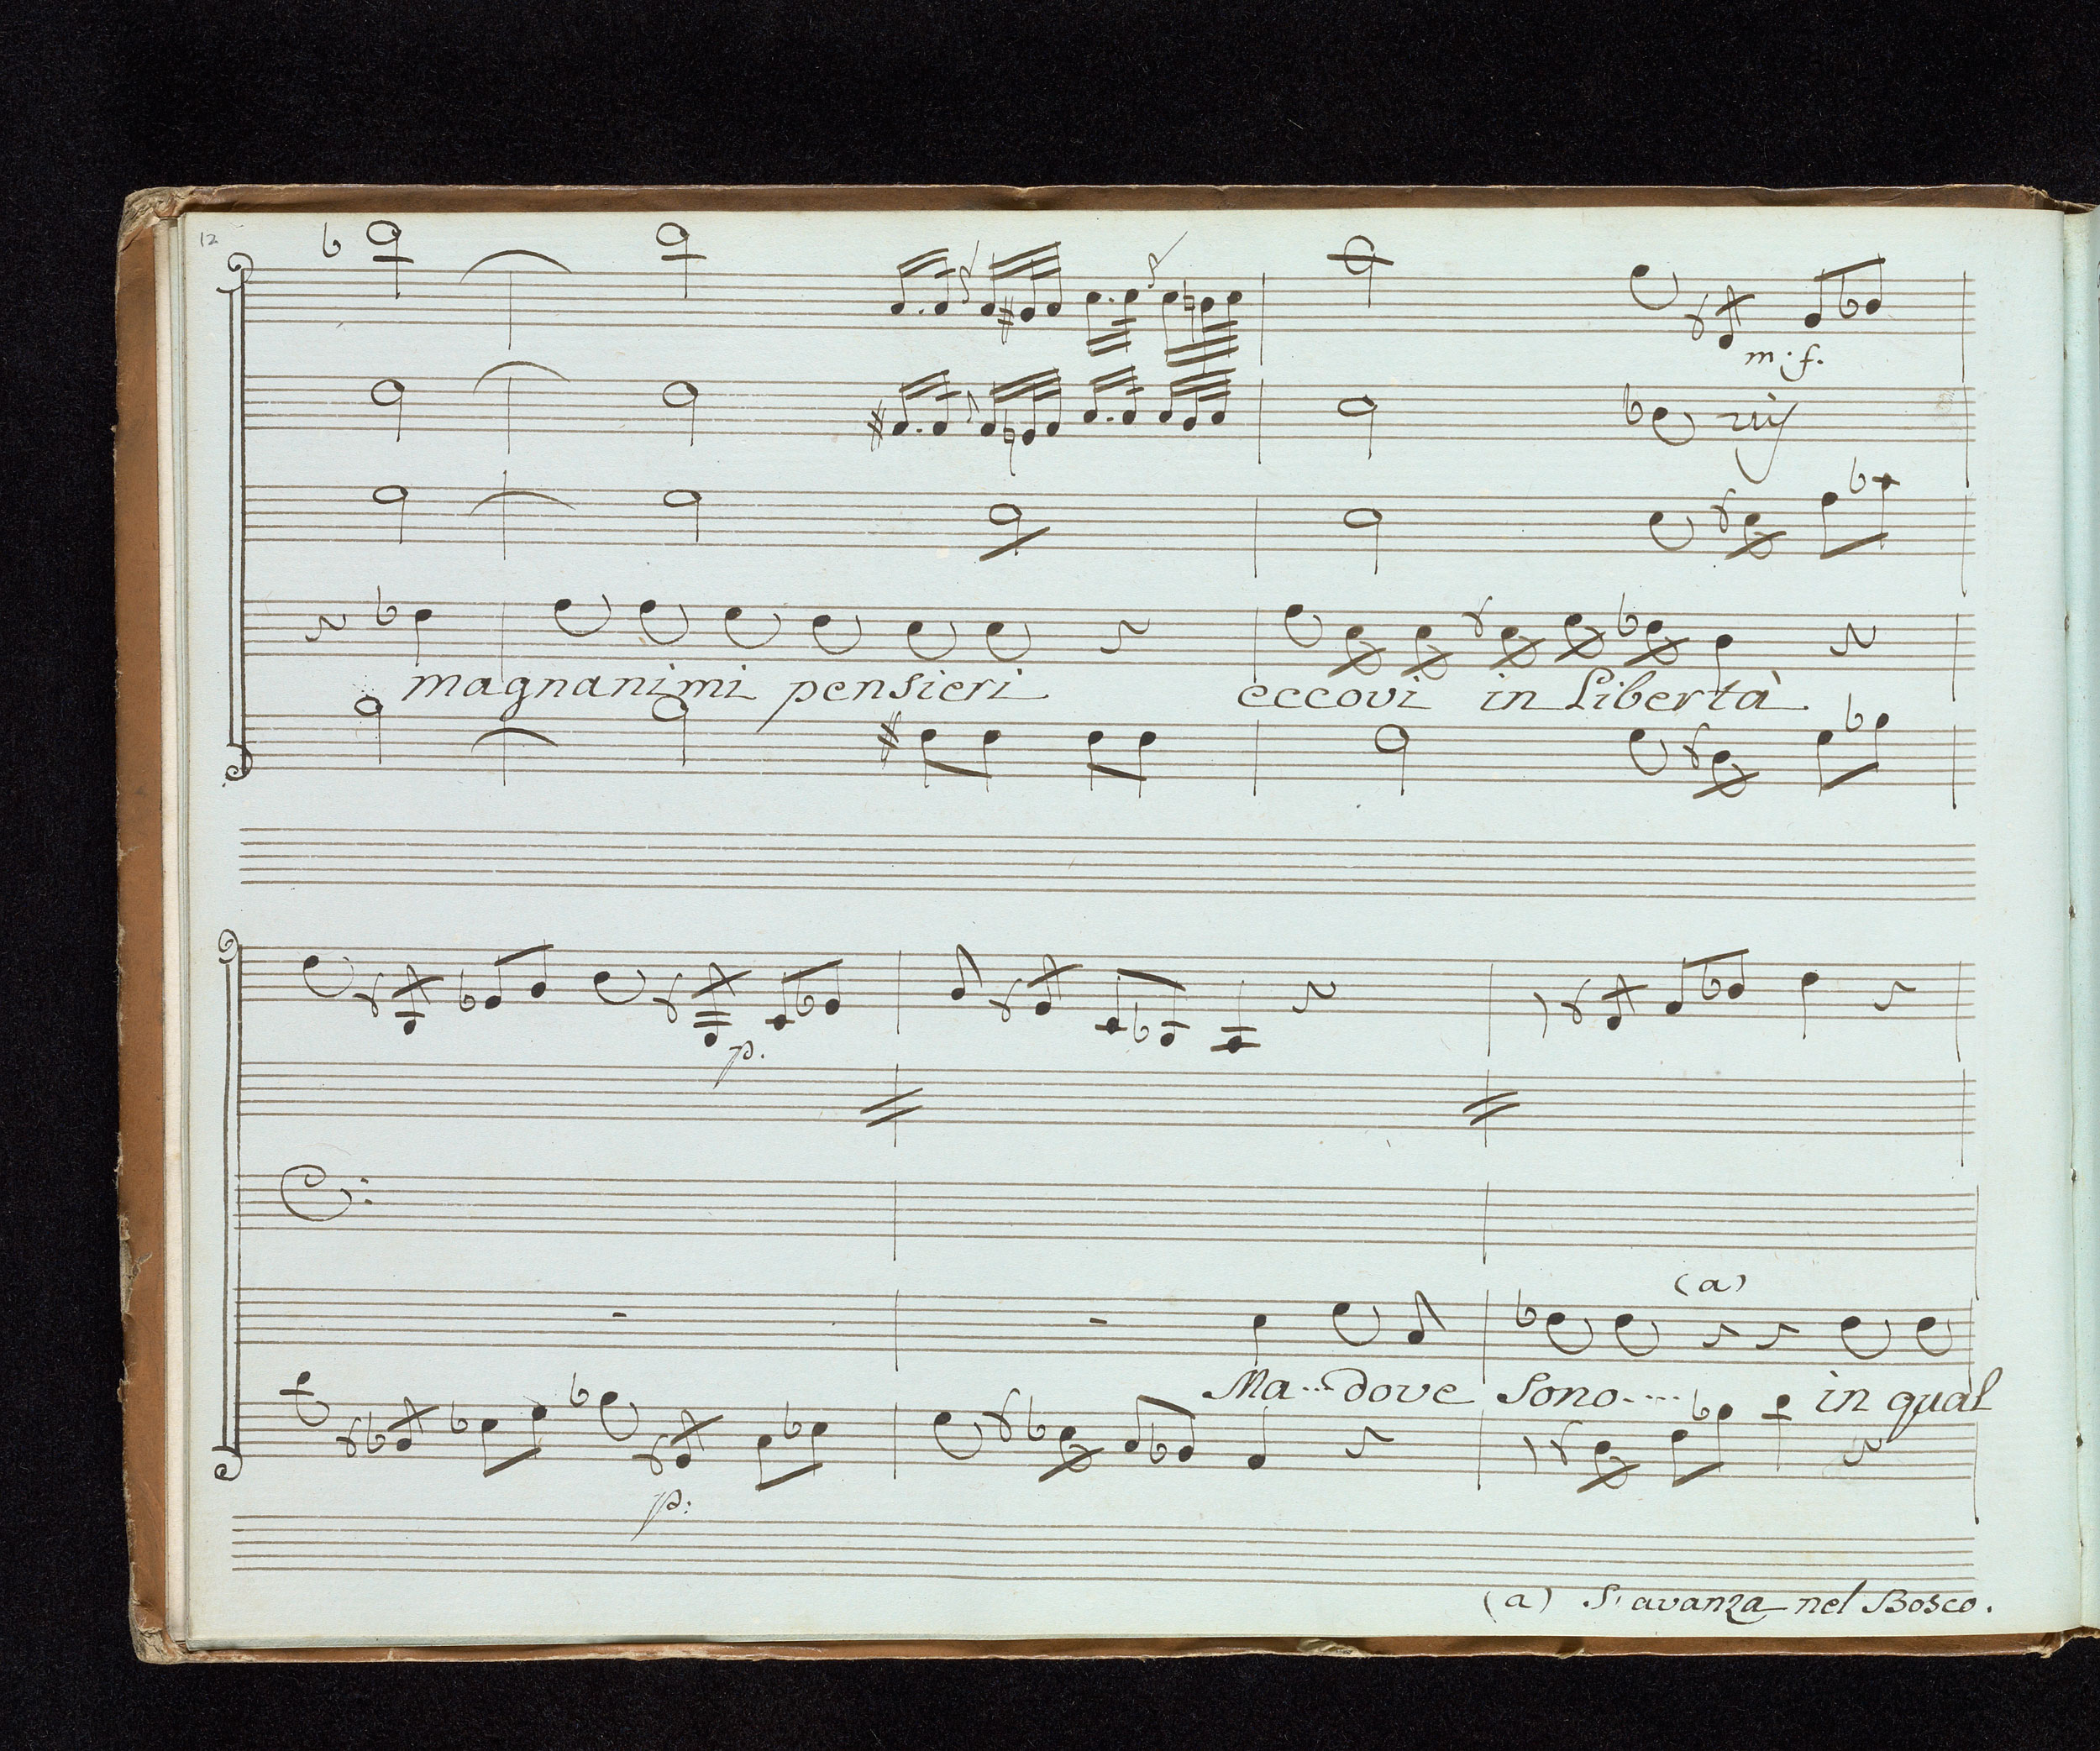 12
m. f.
magnanimi pensieri eccovi in libertà
p.
(a)
Ma... dove sono.... in qual
p:
(a) S'avanza nel Bosco.